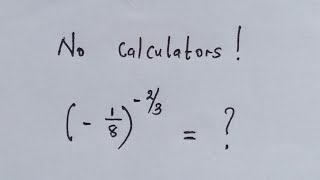 No calculators!
(- 1/8)^-2/3 = ?